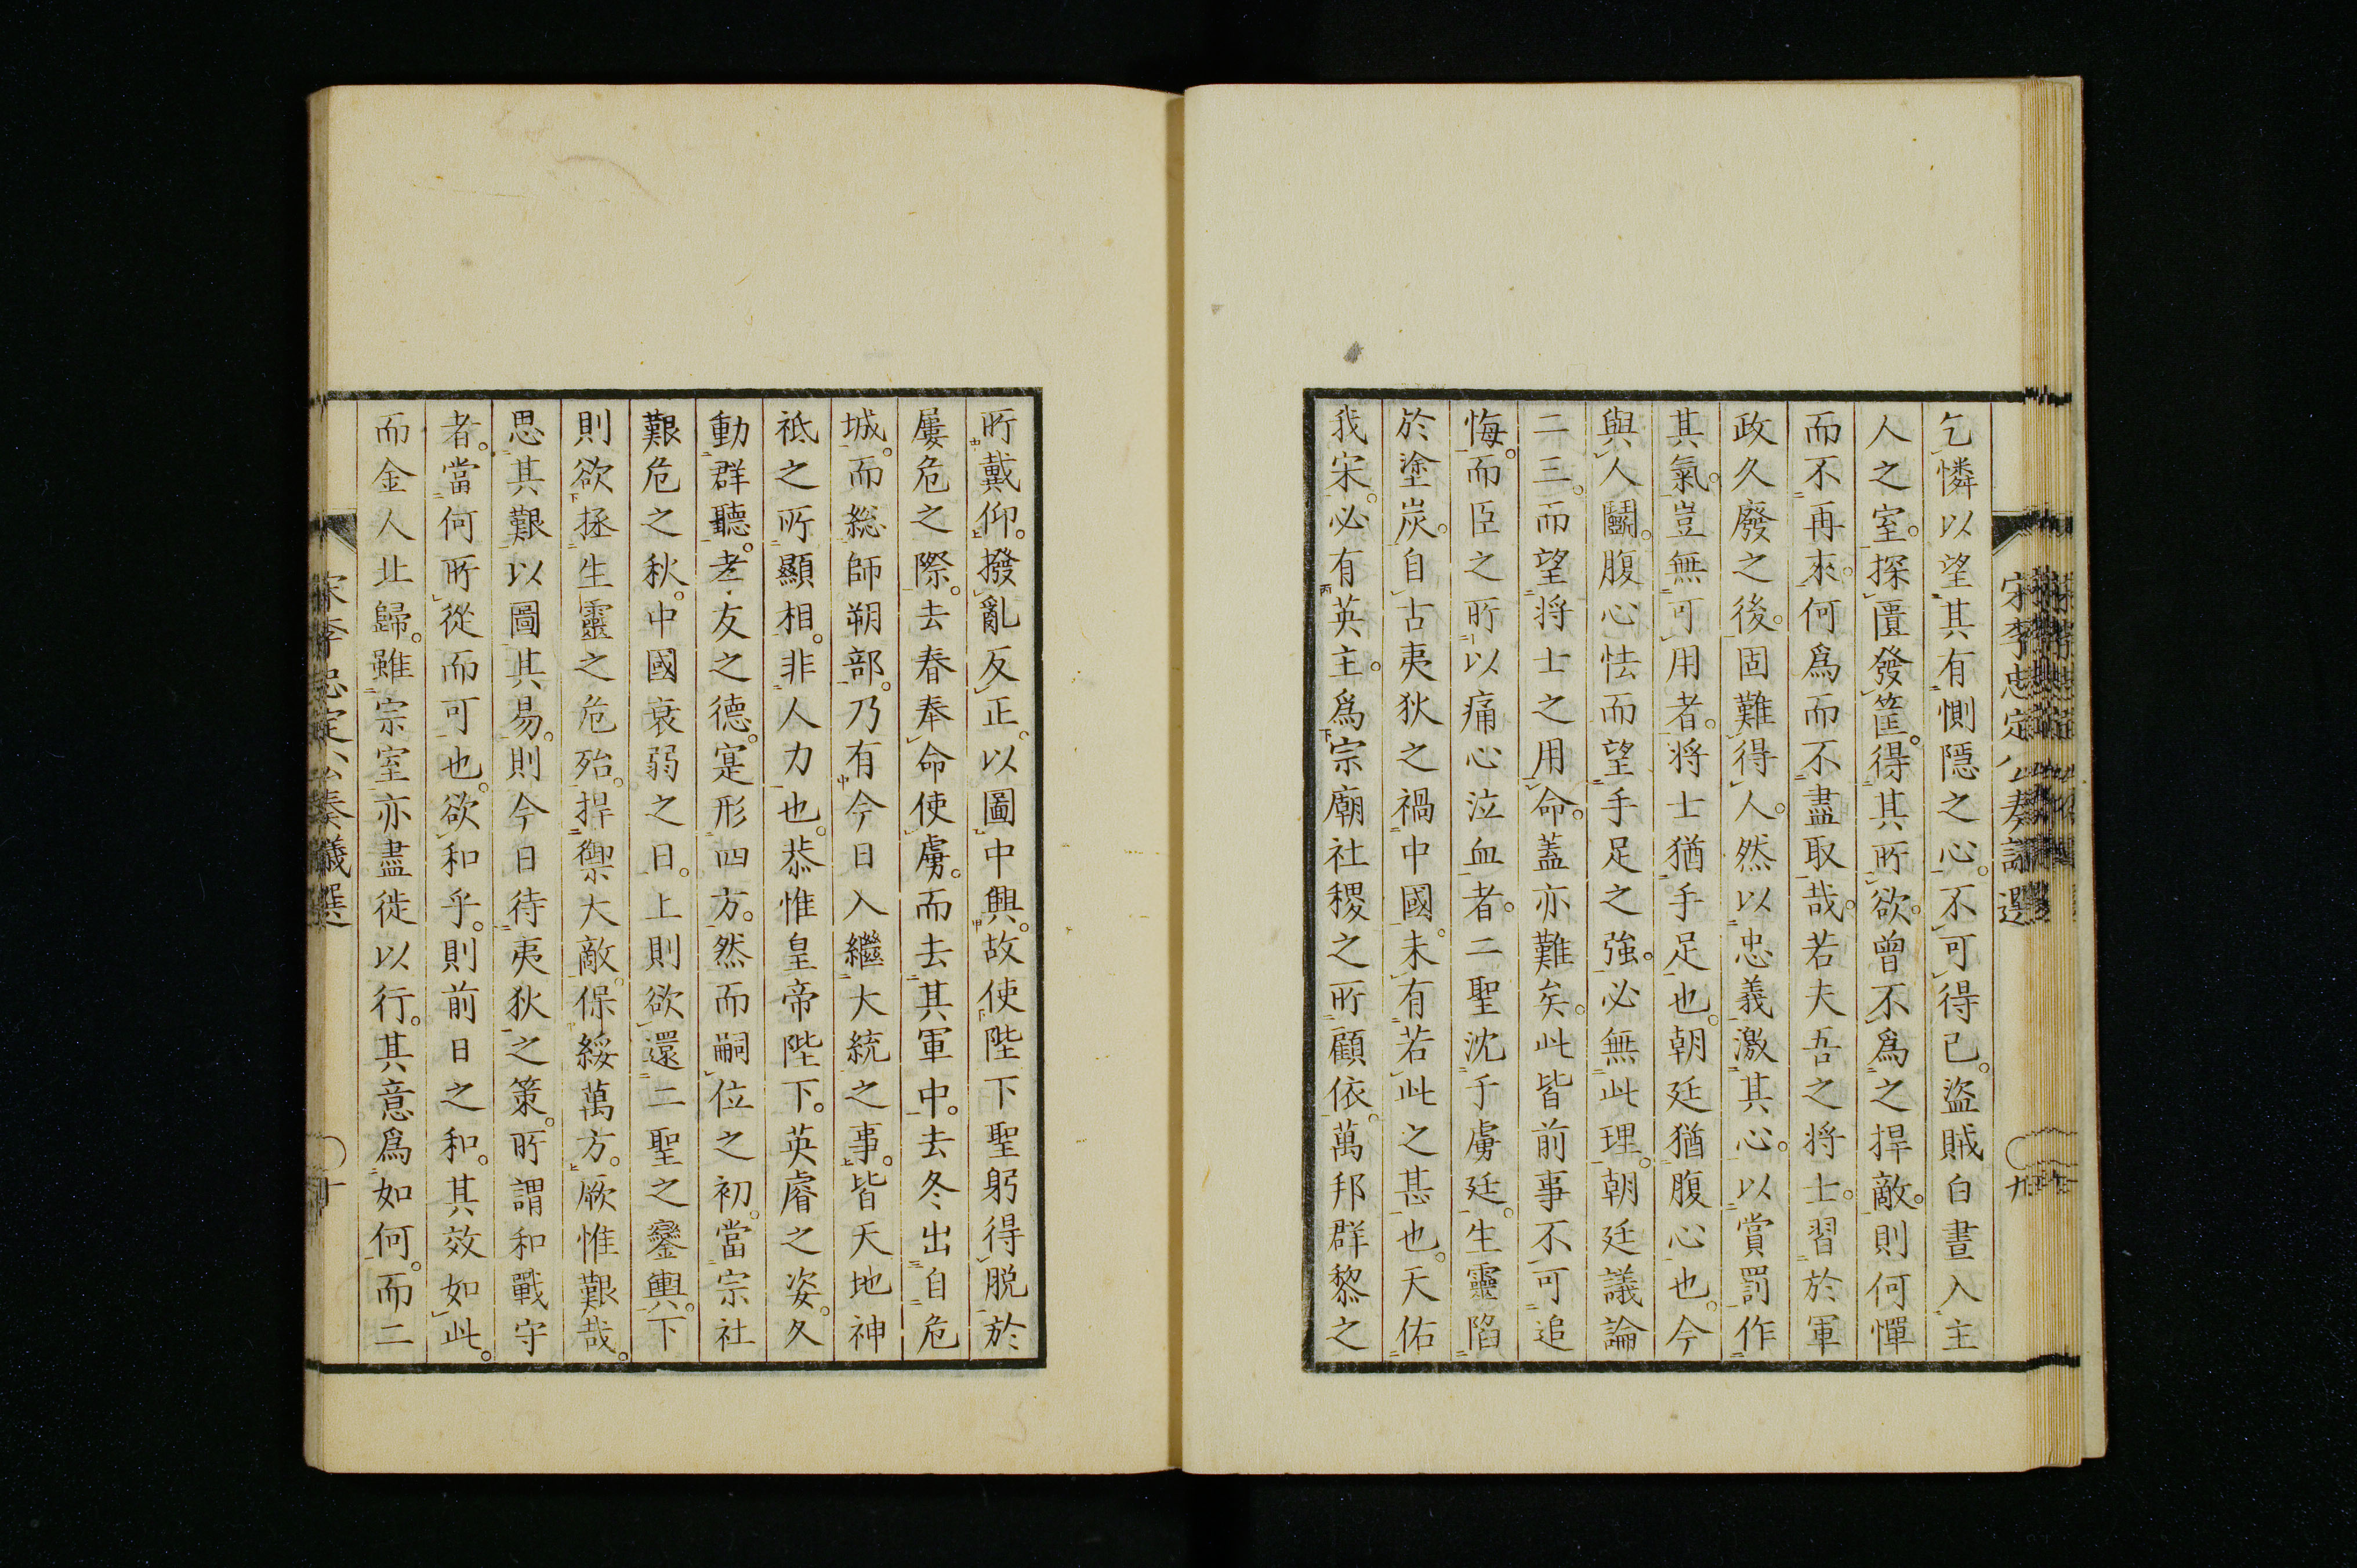 宋李忠定公奏議選 九
乞憐以望其有惻隱之心。不可得已。盜賊白晝入主
人之室。探匱發篋。得其所欲。曾不爲之捍敵。則何憚
而不再來。何爲而不盡取哉。若夫吾之將士。習於軍
政久廢之後。固難得人。然以忠義激其心。以賞罰作
其氣。豈無可用者。將士猶手足也。朝廷猶腹心也。今
與人鬪。腹心怯而望手足之強。必無此理。朝廷議論
二三。而望將士之用命。蓋亦難矣。此皆前事不可追
悔。而臣之所以痛心泣血者。二聖沈于虜廷。生靈陷
於塗炭。自古夷狄之禍中國。未有若此之甚也。天佑
我宋。必有英主。爲宗廟社稷之所顧依。萬邦群黎之
所戴仰。撥亂反正。以圖中興。故使陛下聖躬得脱於
屢危之際。去春奉命使虜。而去其軍中。去冬出自危
城。而総師朔部。乃有今日入繼大統之事。皆天地神
祇之所顯相。非人力也。恭惟皇帝陛下。英睿之姿。久
動群聽。孝友之德。寔形四方。然而嗣位之初。當宗社
艱危之秋。中國衰弱之日。上則欲還二聖之鑾輿。下
則欲拯生靈之危殆。捍禦大敵。保綏萬方。厥惟艱哉。
思其艱以圖其易。則今日待夷狄之策。所謂和戰守
者。當何所從而可也。欲和乎。則前日之和。其效如此。
而金人北歸。雖宗室亦盡徙以行。其意爲如何。而二
宋李忠定公奏議選 十